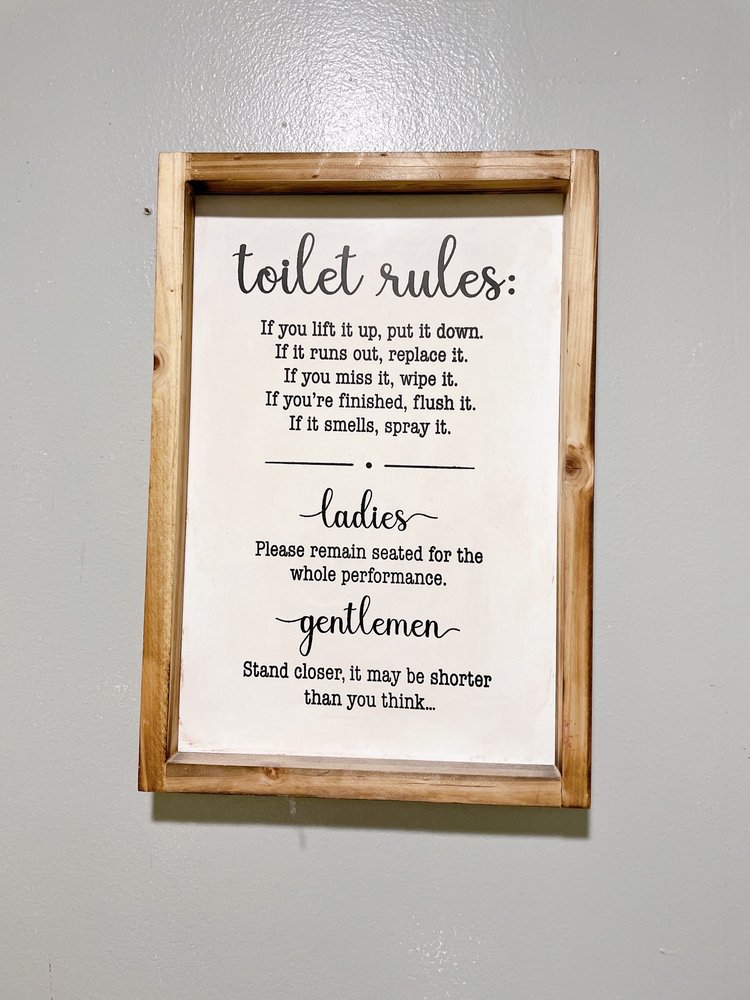 toilet rules:
If you lift it up, put it down.
If it runs out, replace it.
If you miss it, wipe it.
If you're finished, flush it.
If it smells, spray it.
ladies
Please remain seated for the
whole performance.
gentlemen
Stand closer, it may be shorter
than you think...